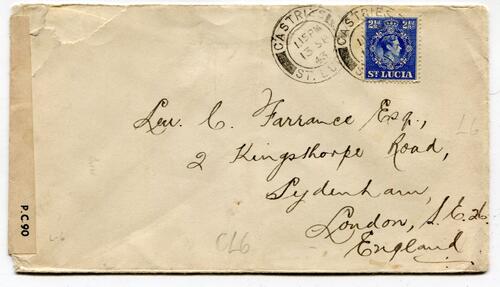 CASTRIES
1.15PM
13 SE
43
ST. LU
CASTRIES
ST. L
2½d 2½d
ST LUCIA
C. Farrance Esq.,
2 Kingsthorpe Road,
Sydenham,
London, S.E.26.
England
P.C 90
L6
CL6